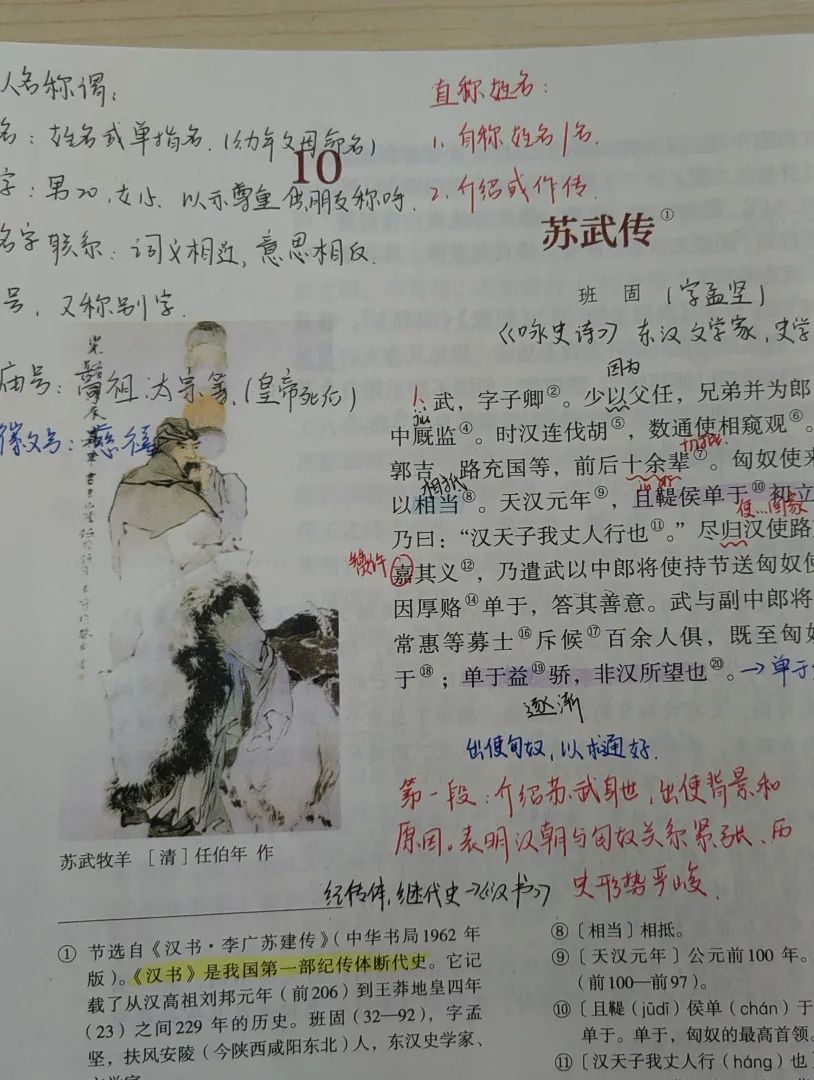 人名称谓：
名：姓名或单指名.（幼年父母命名）
字：男20,女15. 以示尊重 供朋友称呼.
名字联系：词义相近，意思相反.
号，又称别字.
庙号：高祖.太宗等.（皇帝死后）
徽号：慈禧
直称姓名：
1. 自称姓名/名.
2. 介绍或作传
10
苏武传①
班 固 （字孟坚）
《咏史诗》 东汉文学家，史学
因为
武，字子卿②。少以父任，兄弟并为郎
中厩监④。时汉连伐胡⑤，数通使相窥观⑥。
郭吉、路充国等，前后十余辈⑦。匈奴使来
相抵
以相当⑧。天汉元年⑨，且鞮侯单于⑩初立
使…回家
乃曰：“汉天子我丈人行也⑪。”尽归汉使路
赞许
嘉其义⑫，乃遣武以中郎将使持节送匈奴使
因厚赂⑭单于，答其善意。武与副中郎将
常惠等募士⑯斥候⑰百余人俱，既至匈奴
于⑱；单于益⑲骄，非汉所望也⑳。→单于
逐渐
出使匈奴，以求通好.
第一段：介绍苏武身世，出使背景和
原因。表明汉朝与匈奴关系紧张、历
史形势严峻.
苏武牧羊 ［清］任伯年 作
纪传体，继代史→《汉书》
① 节选自《汉书·李广苏建传》（中华书局1962 年
版）。《汉书》是我国第一部纪传体断代史。它记
载了从汉高祖刘邦元年（前206）到王莽地皇四年
（23）之间229 年的历史。班固（32—92），字孟
坚，扶风安陵（今陕西咸阳东北）人，东汉史学家、
⑧〔相当〕相抵。
⑨〔天汉元年〕公元前100 年。
（前100—前97）。
⑩〔且鞮（jūdī）侯单（chán）于
单于。单于，匈奴的最高首领。
⑪〔汉天子我丈人行（háng）也